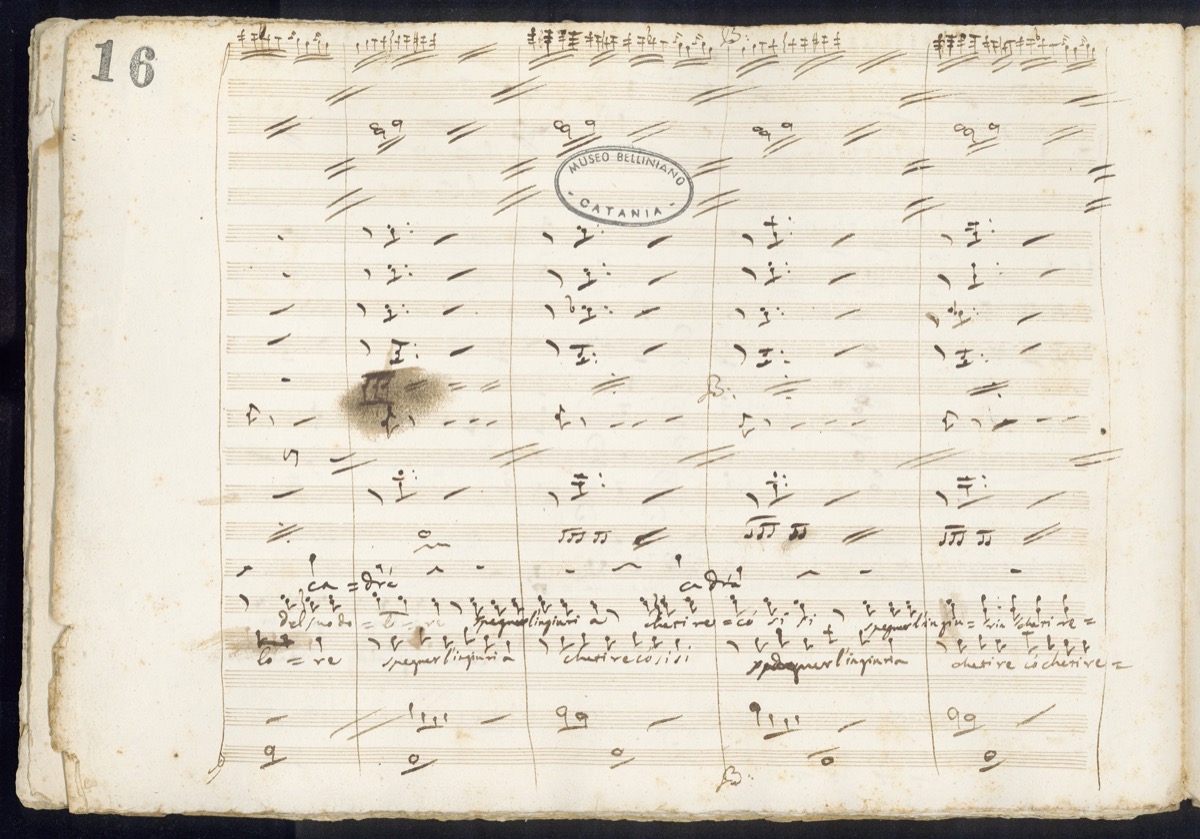 16
MUSEO BELLINIANO
- CATANIA -
ca = drà ca drà
del suo do = lo = re spegner l'ingiuri a che ti re = co si si spegner l'ingiu = ria che ti re =
lo = re spegner l'ingiuria che ti re co si si l'ingiuria che ti re co che ti re =